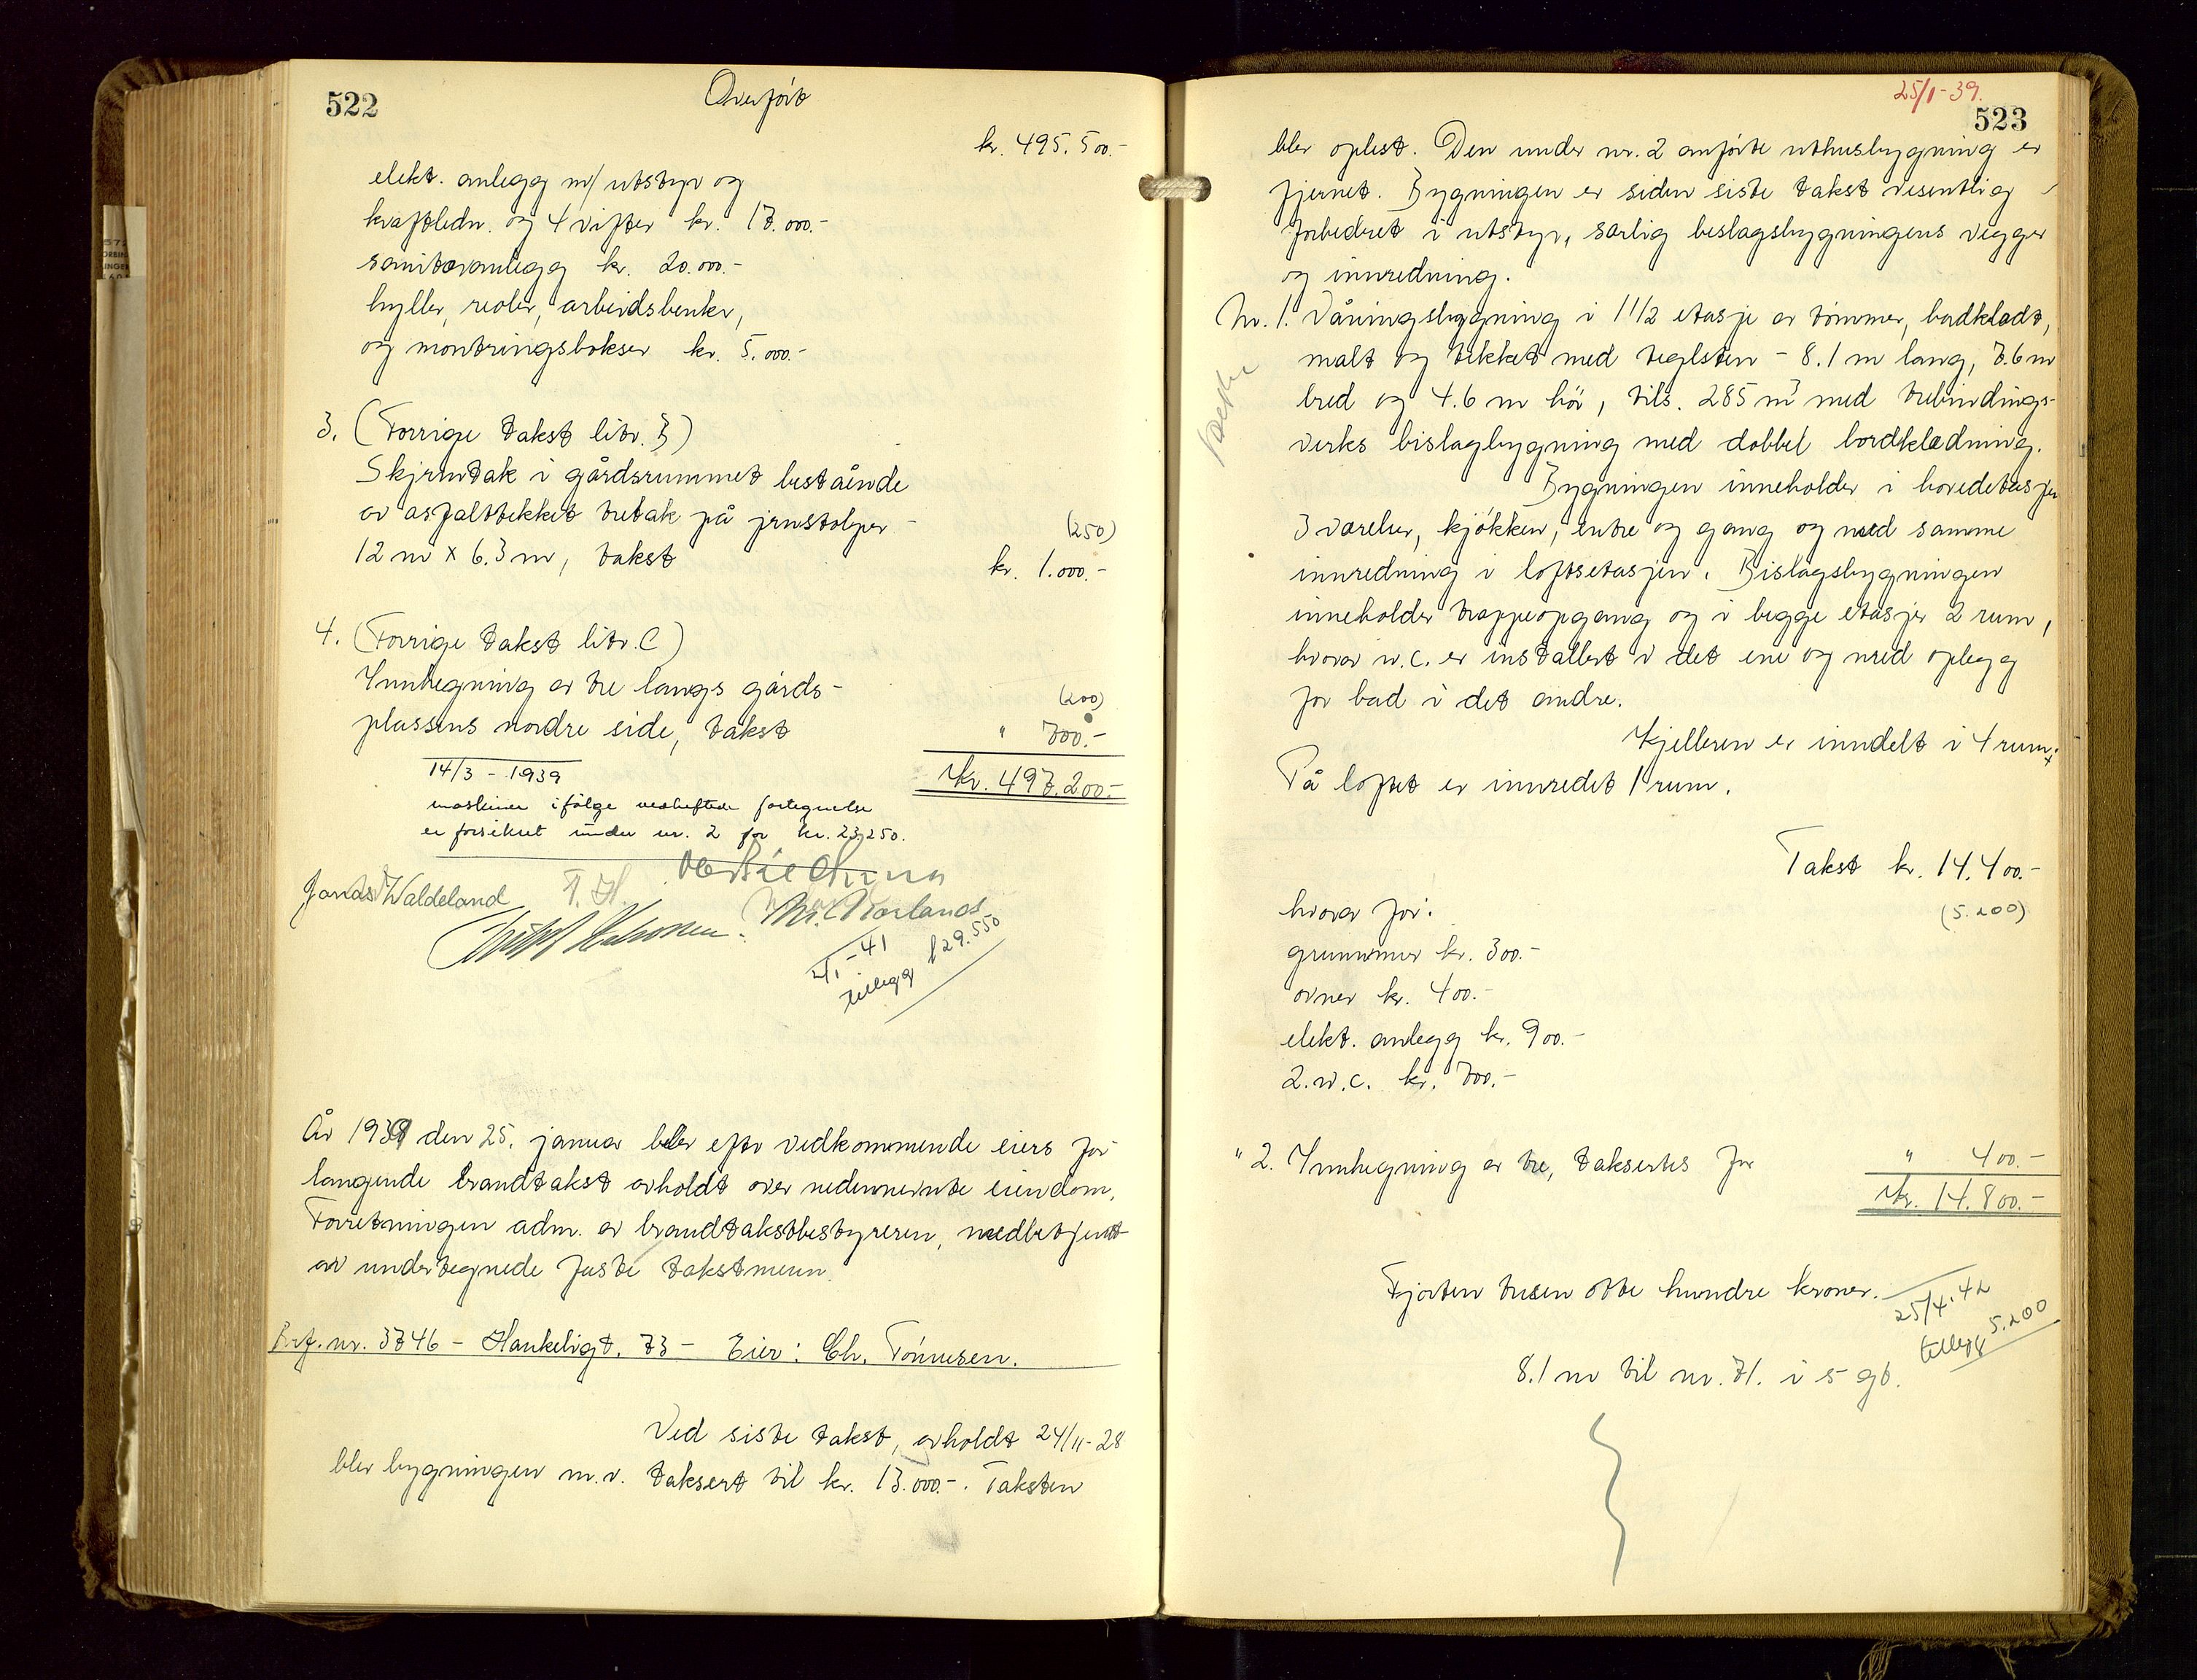 522
Overført
kr. 495.500.-
elekt. anlegg m/ utstyr og
kraftledn. og 4 vifter kr. 17.000.-
sanitæranlegg kr. 20.000.-
hyller, reoler, arbeidsbenker,
og montringsbokser kr. 5.000.-
3. (Forrige takst litr. B)
Skjermtak i gårdsrummet bestående
av asfalttekket tretak på jernstolper
(250)
12 m x 6.3 m, takst kr. 1.000.-
4. (Forrige takst litr. C)
Innhegning av tre langs gårds-
(200)
plassens nordre side, takst " 700.-
Kr. 497.200.-
14/3 - 1939
maskiner ifølge vedheftede fortegnelse
er forsikret under nr. 2 for kr. 23,250.
Jonas Waldeland T. H.
2/1 - 41
tillegg 129.550
År 1939 den 25. januar blev eftr vedkommende eiers for
langende brandtakst avholdt over nedennevnte eiendom.
Forretningen adm. av brandtakstbestyreren, medbetjent
av undertegnede faste takstmenn.
Brf. nr. 3746 - Haukeligt. 73 - Eier: Ch. Tønnesen.
Ved siste takst, avholdt 24/11-28
blev bygningen m.v. taksert til kr. 13.000.-. Taksten
25/1-39.
523
blev oplest. Den under nr. 2 anførte uthusbygning er
fjernet. Bygningen er siden siste takst vesentlig
forbedret i utstyr, særlig beslagsbygningens vegger
og innredning.
Nr. 1. Våningsbygning i 1 1/2 etasje av tømmer, bordkledt,
malt og tekket med teglsten - 8.1 m lang, 7.6 m
bred og 4.6 m høi, tils. 285 m3 med trebindings-
verks bislagbygning med dobbel bordkledning.
Bygningen inneholder i hovedetasjen
3 værelser, kjøkken, entre og gang og med samme
innredning i loftsetasjen. Bislagsbygningen
inneholder trappeopgang og i begge etasjer 2 rum,
hvorav w.c. er installert i det ene og med oplegg
for bad i det andre.
Kjelleren er inndelt i 4 rum.
På loftet er innredet 1 rum.
Takst kr. 14.400.-
(5.200)
hvorav for:
grunnmur kr. 300.-
ovner kr. 400.-
elekt. anlegg kr. 900.-
2. w.c. kr. 700.-
" 2. Innhegning av tre, takseres for " 400.-
Kr. 14.800.-
Fjorten tusen otte hundre kroner.
25/4. 42
tillegg 5.200
8.1 m til nr. 71. i s gt.